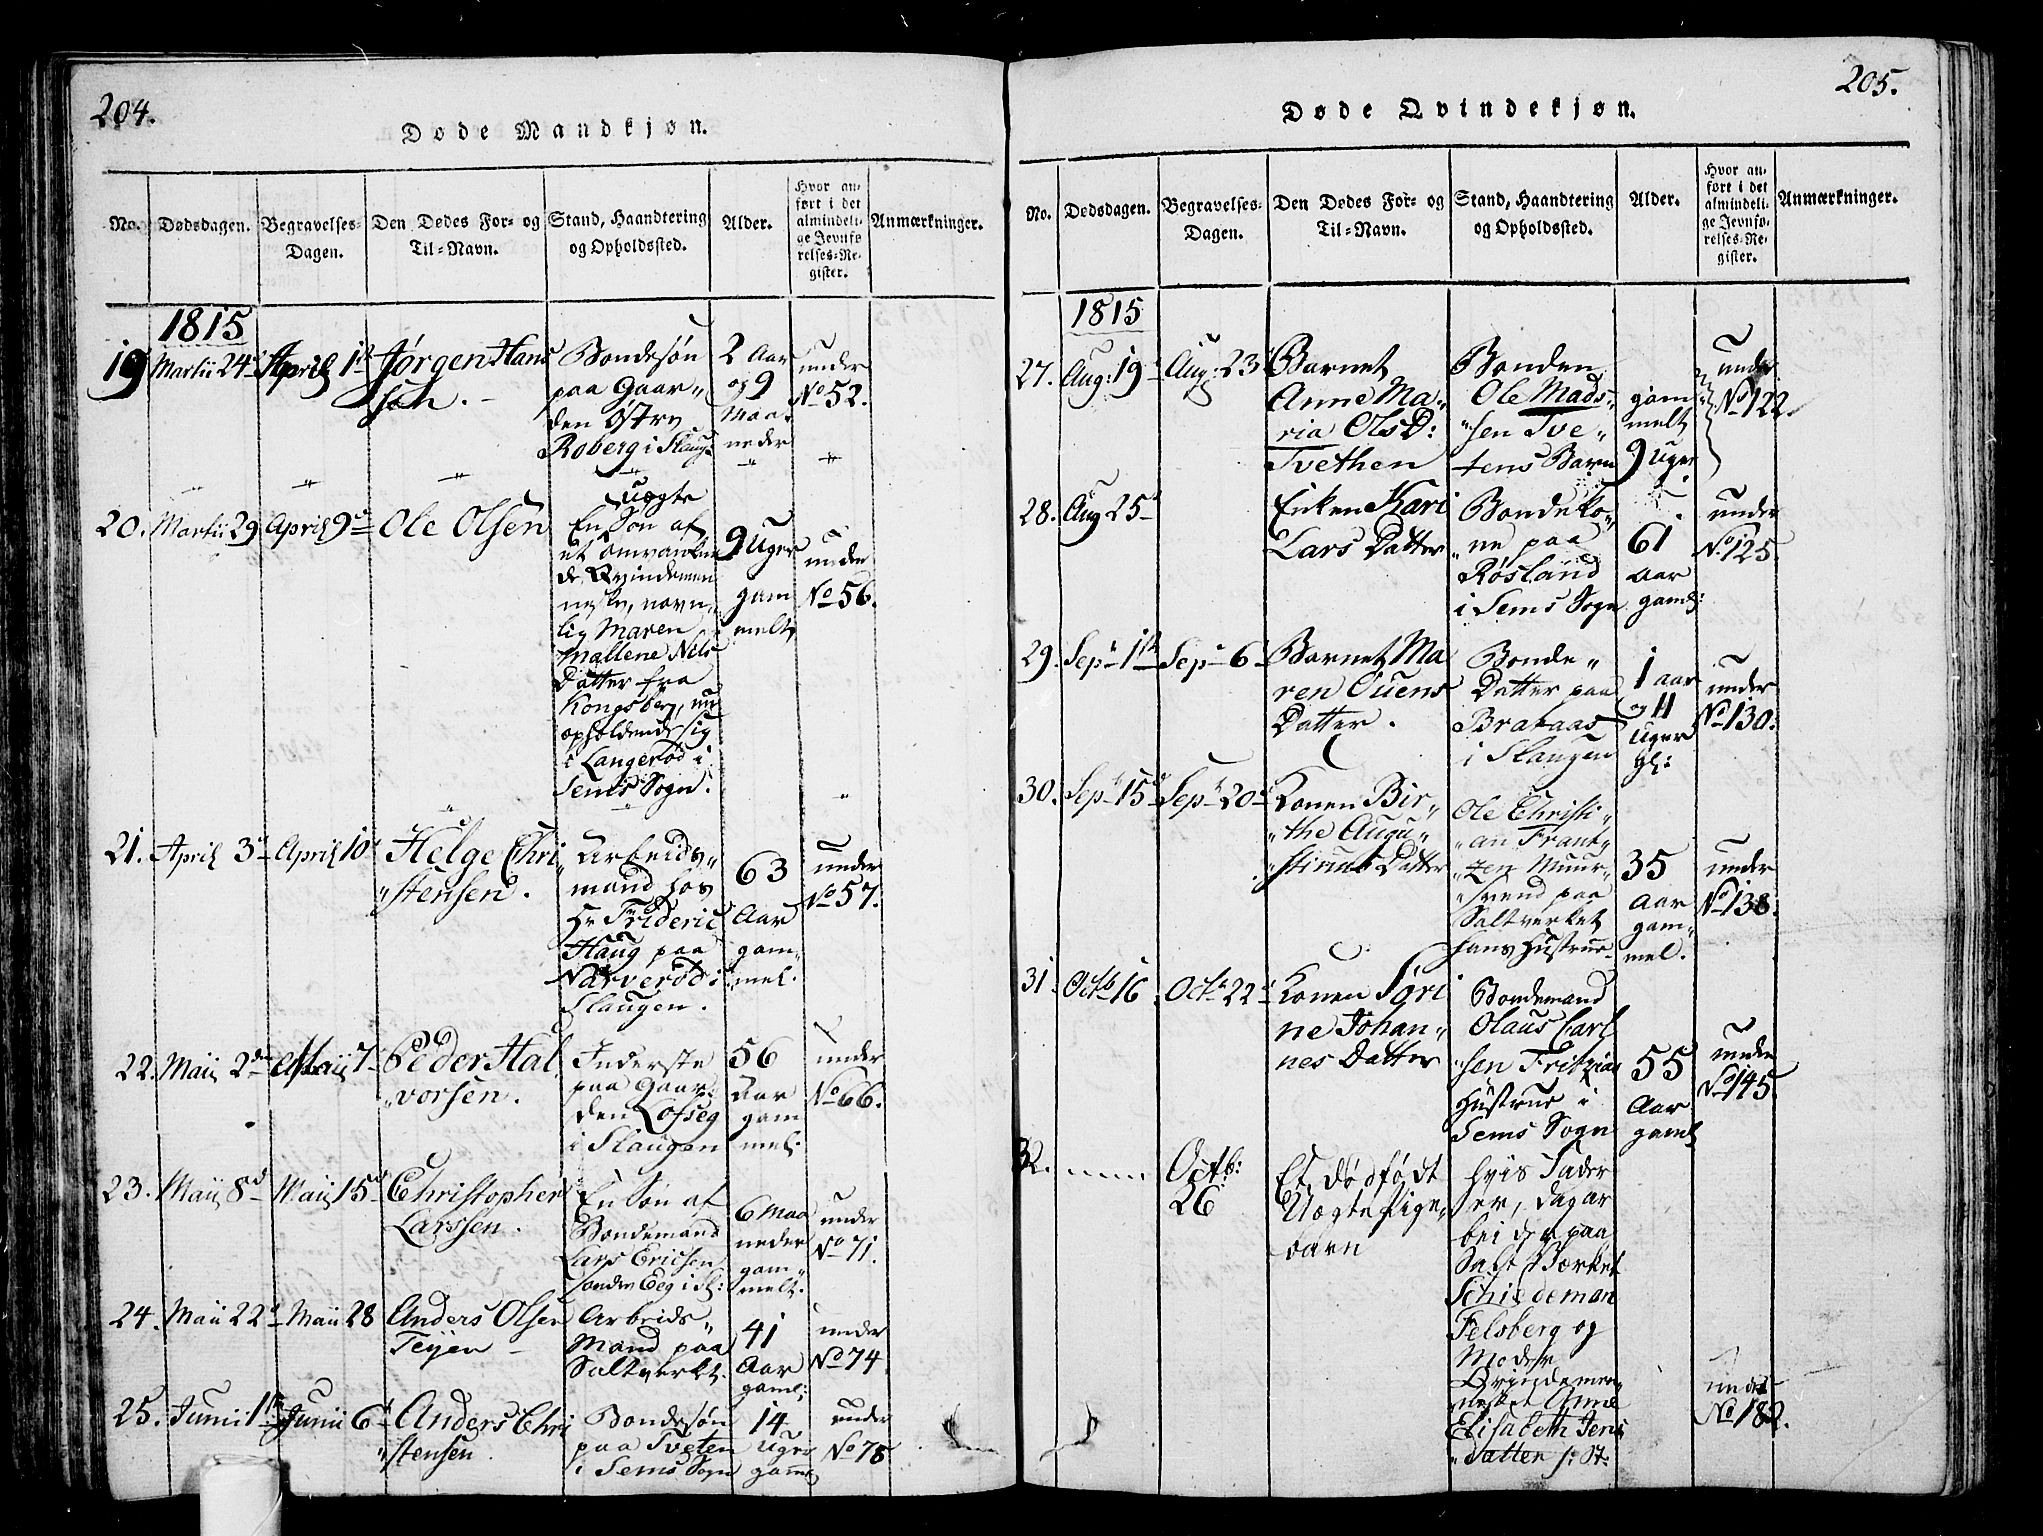 204.
Døde Mandkjøn.
No.
Dødsdagen.
Begravelses-
Dagen.
Den Dødes For- og
Til-Navn.
Stand, Haandtering
og Opholdssted.
Alder.
Hvor an-
ført i det
almindeli-
ge Jevnfø
relses-Re-
gister.
Anmærkninger.
1815
19
Martii 24
April 1st
Jørgen Hans
sen.
Bondesøn
paa Gaar-
den Østre
Roberg i Slaug:
2 Aar
og 9
Maa-
neder
under
No 52.
20.
Martii 29
April 9
Ole Olsen
uægte
En Søn af
et omvanken
de Qvindemen
neske, navn-
lig Maren
Mallene Nils
Datter fra
Kongsberg, nu
opholdende sig
i Langerød i
Sems Sogn.
9 Uger
gam
melt
under
No 56.
21.
April 3
April 10
Helge Chri
"stensen.
Arbeids-
mand hos
Hr Frideric
Haug paa
Narverød i
Slaugen.
63
Aar
gam-
mel.
under
No 57.
22.
Maii 2den
Maii 7
Peder Hal
"vorsen.
Inderste
paa Gaar-
den Lofseg
i Slaugen
56
Aar
gam
mel:
under
No 66.
23.
Maii 8d
Maii 15d
Christopher
Larssen.
En Søn af
Bondemand
Lars Ericsen
søndre Eeg i Sl:
6 Maa
neder
gam-
melt.
under
No 71.
24.
Maii 22
Maii 28
Anders Olsen
Teijen
Arbeids-
Mand paa
Saltverket.
41
Aar
gaml:
under
No 74
25.
Junii 1ste
Junii 6
Anders Chri
"stensen.
Bondesøn
paa Tveten
i Sems Sogn
14
Uger
gamel
under
No 78
205.
Døde Qvindekjøn.
No.
Dødsdagen.
Begravelses-
Dagen.
Den Dødes For- og
Til-Navn.
Stand, Haandtering
og Opholdssted.
Alder.
Hvor an-
ført i det
almindeli-
ge Jevnfø-
relses-Re-
gister.
Anmærkninger.
1815
27.
Aug: 19
Aug: 23
Barnet
Anne Ma-
ria OlsD:
Tvethen
Bonden
Ole Mads-
"sen Tve-
tens Barn
gam
melt
9 Uger
under
No 122.
28.
Aug 25
Enken Kari
Lars Datter
Bondeko-
"ne paa
Røsland
i Sems Sogn
61
Aar
gaml:
under
No 125.
29.
Sept 1st
Sept 6
Barnet Ma
ren Ouens
Datter.
Bonde-
Datter paa
Brataas
i Slaugen
1 aar
og 11
Uger
gl:
under
No 130.
30.
Sept 15d
Sept 20
Konen Bir-
"the Augu-
"stinus Datter
Ole Christi-
"an Frant-
"zen Muur-
"svend paa
Saltverket
hans Hustrue
35
Aar
gam-
mel.
under
No 138.
31.
Octb 16
Octb 22
Konen Søri
ne Johan-
nes Datter
Bondemand
Olaus Carl
"sen Fritzøas
Hustrue i
Sems Sogn
55
Aar
gaml
under
No 145.
32.
Octb:
26
Et dødfødt
Uægte Pige-
barn
hvis Fader
er, Dagar
beider paa
Salt Værket
Schiedeman
Felsberg og
Moder
Qvindemen-
nesket Anne
Elisabeth Jens
"Datter
under
No 182.